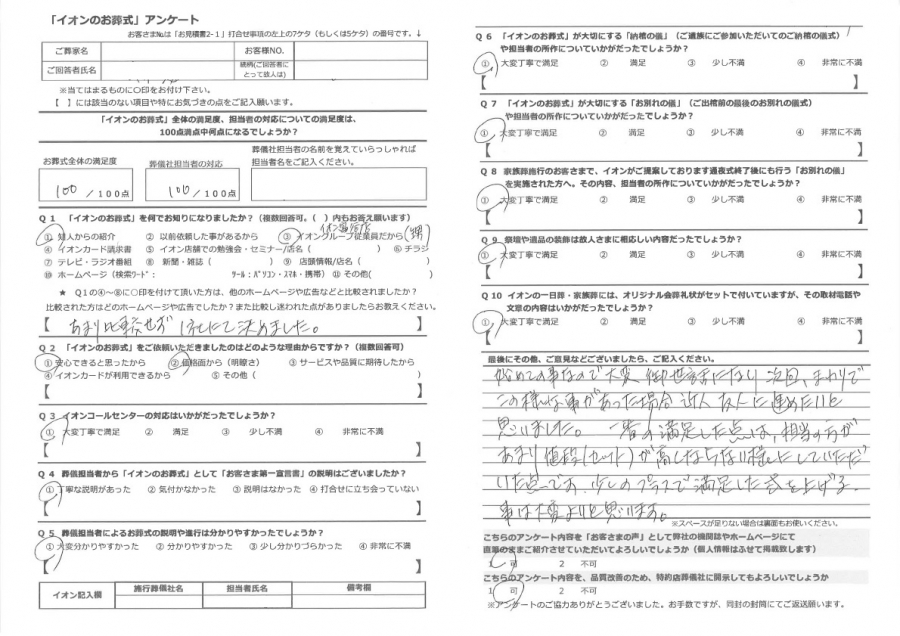 「イオンのお葬式」アンケート
お客さま№は「お見積書2-1」打合せ事項の左上の7ケタ（もしくは5ケタ）の番号です。↓
ご葬家名 お客様NO.
ご回答者氏名 続柄(ご回答者にとって故人は)
※当てはまるものに〇印をお付け下さい。
【 】には該当のない項目や特にお気づきの点をご記入願います。
「イオンのお葬式」全体の満足度、担当者の対応についての満足度は、
100点満点中何点になるでしょうか？
お葬式全体の満足度 葬儀社担当者の対応 葬儀社担当者の名前を覚えていらっしゃれば
担当者名をご記入ください。
100 / 100点 100 / 100点
Q 1 「イオンのお葬式」を何でお知りになりましたか？（複数回答可。（ ）内もお答え願います）
① 知人からの紹介 ② 以前依頼した事があるから ③ イオングループ従業員だから
④ イオンカード請求書 ⑤ イオン店舗での勉強会・セミナー/店名（ ） ⑥ チラシ
⑦ テレビ・ラジオ番組 ⑧ 新聞・雑誌（ ） ⑨ 店頭情報/店名（ ）
⑩ ホームページ（検索ﾜｰﾄﾞ： ﾂｰﾙ：ﾊﾟｿｺﾝ・ｽﾏﾎ・携帯） ⑪ その他( )
★ Q１の④～⑧に〇印を付けて頂いた方は、他のホームページや広告などと比較されましたか？
比較された方はどのホームページや広告でしたか？また比較し迷われた点がありましたらお教えください。
【 あまり比較せず 1社にて決めました。 】
Q 2 「イオンのお葬式」をご依頼いただきましたのはどのような理由からですか？（複数回答可）
① 安心できると思ったから ② 価格面から（明瞭さ） ③ サービスや品質に期待したから
④ イオンカードが利用できるから ⑤ その他（ ）
【 】
Q 3 イオンコールセンターの対応はいかがだったでしょうか？
① 大変丁寧で満足 ② 満足 ③ 少し不満 ④ 非常に不満
【 】
Q 4 葬儀担当者から「イオンのお葬式」として「お客さま第一宣言書」の説明はございましたか？
① 丁寧な説明があった ② 気付かなかった ③ 説明はなかった ④ 打合せに立ち会っていない
【 】
Q 5 葬儀担当者によるお葬式の説明や進行は分かりやすかったでしょうか？
① 大変分かりやすかった ② 分かりやすかった ③ 少し分かりづらかった ④ 非常に不満
【 】
イオン記入欄 施行葬儀社名 担当者氏名 備考欄
Q 6 「イオンのお葬式」が大切にする「納棺の儀」（ご遺族にご参加いただいてのご納棺の儀式）
や担当者の所作についていかがだったでしょうか？
① 大変丁寧で満足 ② 満足 ③ 少し不満 ④ 非常に不満
【 】
Q 7 「イオンのお葬式」が大切にする「お別れの儀」（ご出棺前の最後のお別れの儀式）
や担当者の所作についていかがだったでしょうか？
① 大変丁寧で満足 ② 満足 ③ 少し不満 ④ 非常に不満
【 】
Q 8 家族葬施行のお客さまで、イオンがご提案しております通夜式終了後にも行う「お別れの儀」
を実施された方へ。その内容、担当者の所作についていかがだったでしょうか？
① 大変丁寧で満足 ② 満足 ③ 少し不満 ④ 非常に不満
【 】
Q 9 祭壇や遺品の装飾は故人さまに相応しい内容だったでしょうか？
① 大変丁寧で満足 ② 満足 ③ 少し不満 ④ 非常に不満
【 】
Q 10 イオンの一日葬・家族葬には、オリジナル会葬礼状がセットで付いていますが、その取材電話や
文章の内容はいかがだったでしょうか？
① 大変丁寧で満足 ② 満足 ③ 少し不満 ④ 非常に不満
【 】
最後にその他、ご意見などございましたら、ご記入ください。
始めての事なので大変御世話になり 次回、まわりで
この様な事があった場合 近人 友人に進めたいと
思いました。 一番の満足した点は、担当の方が
あまり値段(セット)が高くならない様にしていただ
いた点です。少しのプラスで満足した式を上げる
事は大変よいと思います。
※スペースが足りない場合は裏面もお使いください。
こちらのアンケート内容を「お客さまの声」として弊社の機関誌やホームページにて
直筆のままご紹介させていただいてよろしいでしょうか（個人情報はふせて掲載致します）
1 可 2 不可
こちらのアンケート内容を、品質改善のため、特約店葬儀社に開示してもよろしいでしょうか
1 可 2 不可
※アンケートのご協力ありがとうございました。お手数ですが、同封の封筒にてご返送願います。